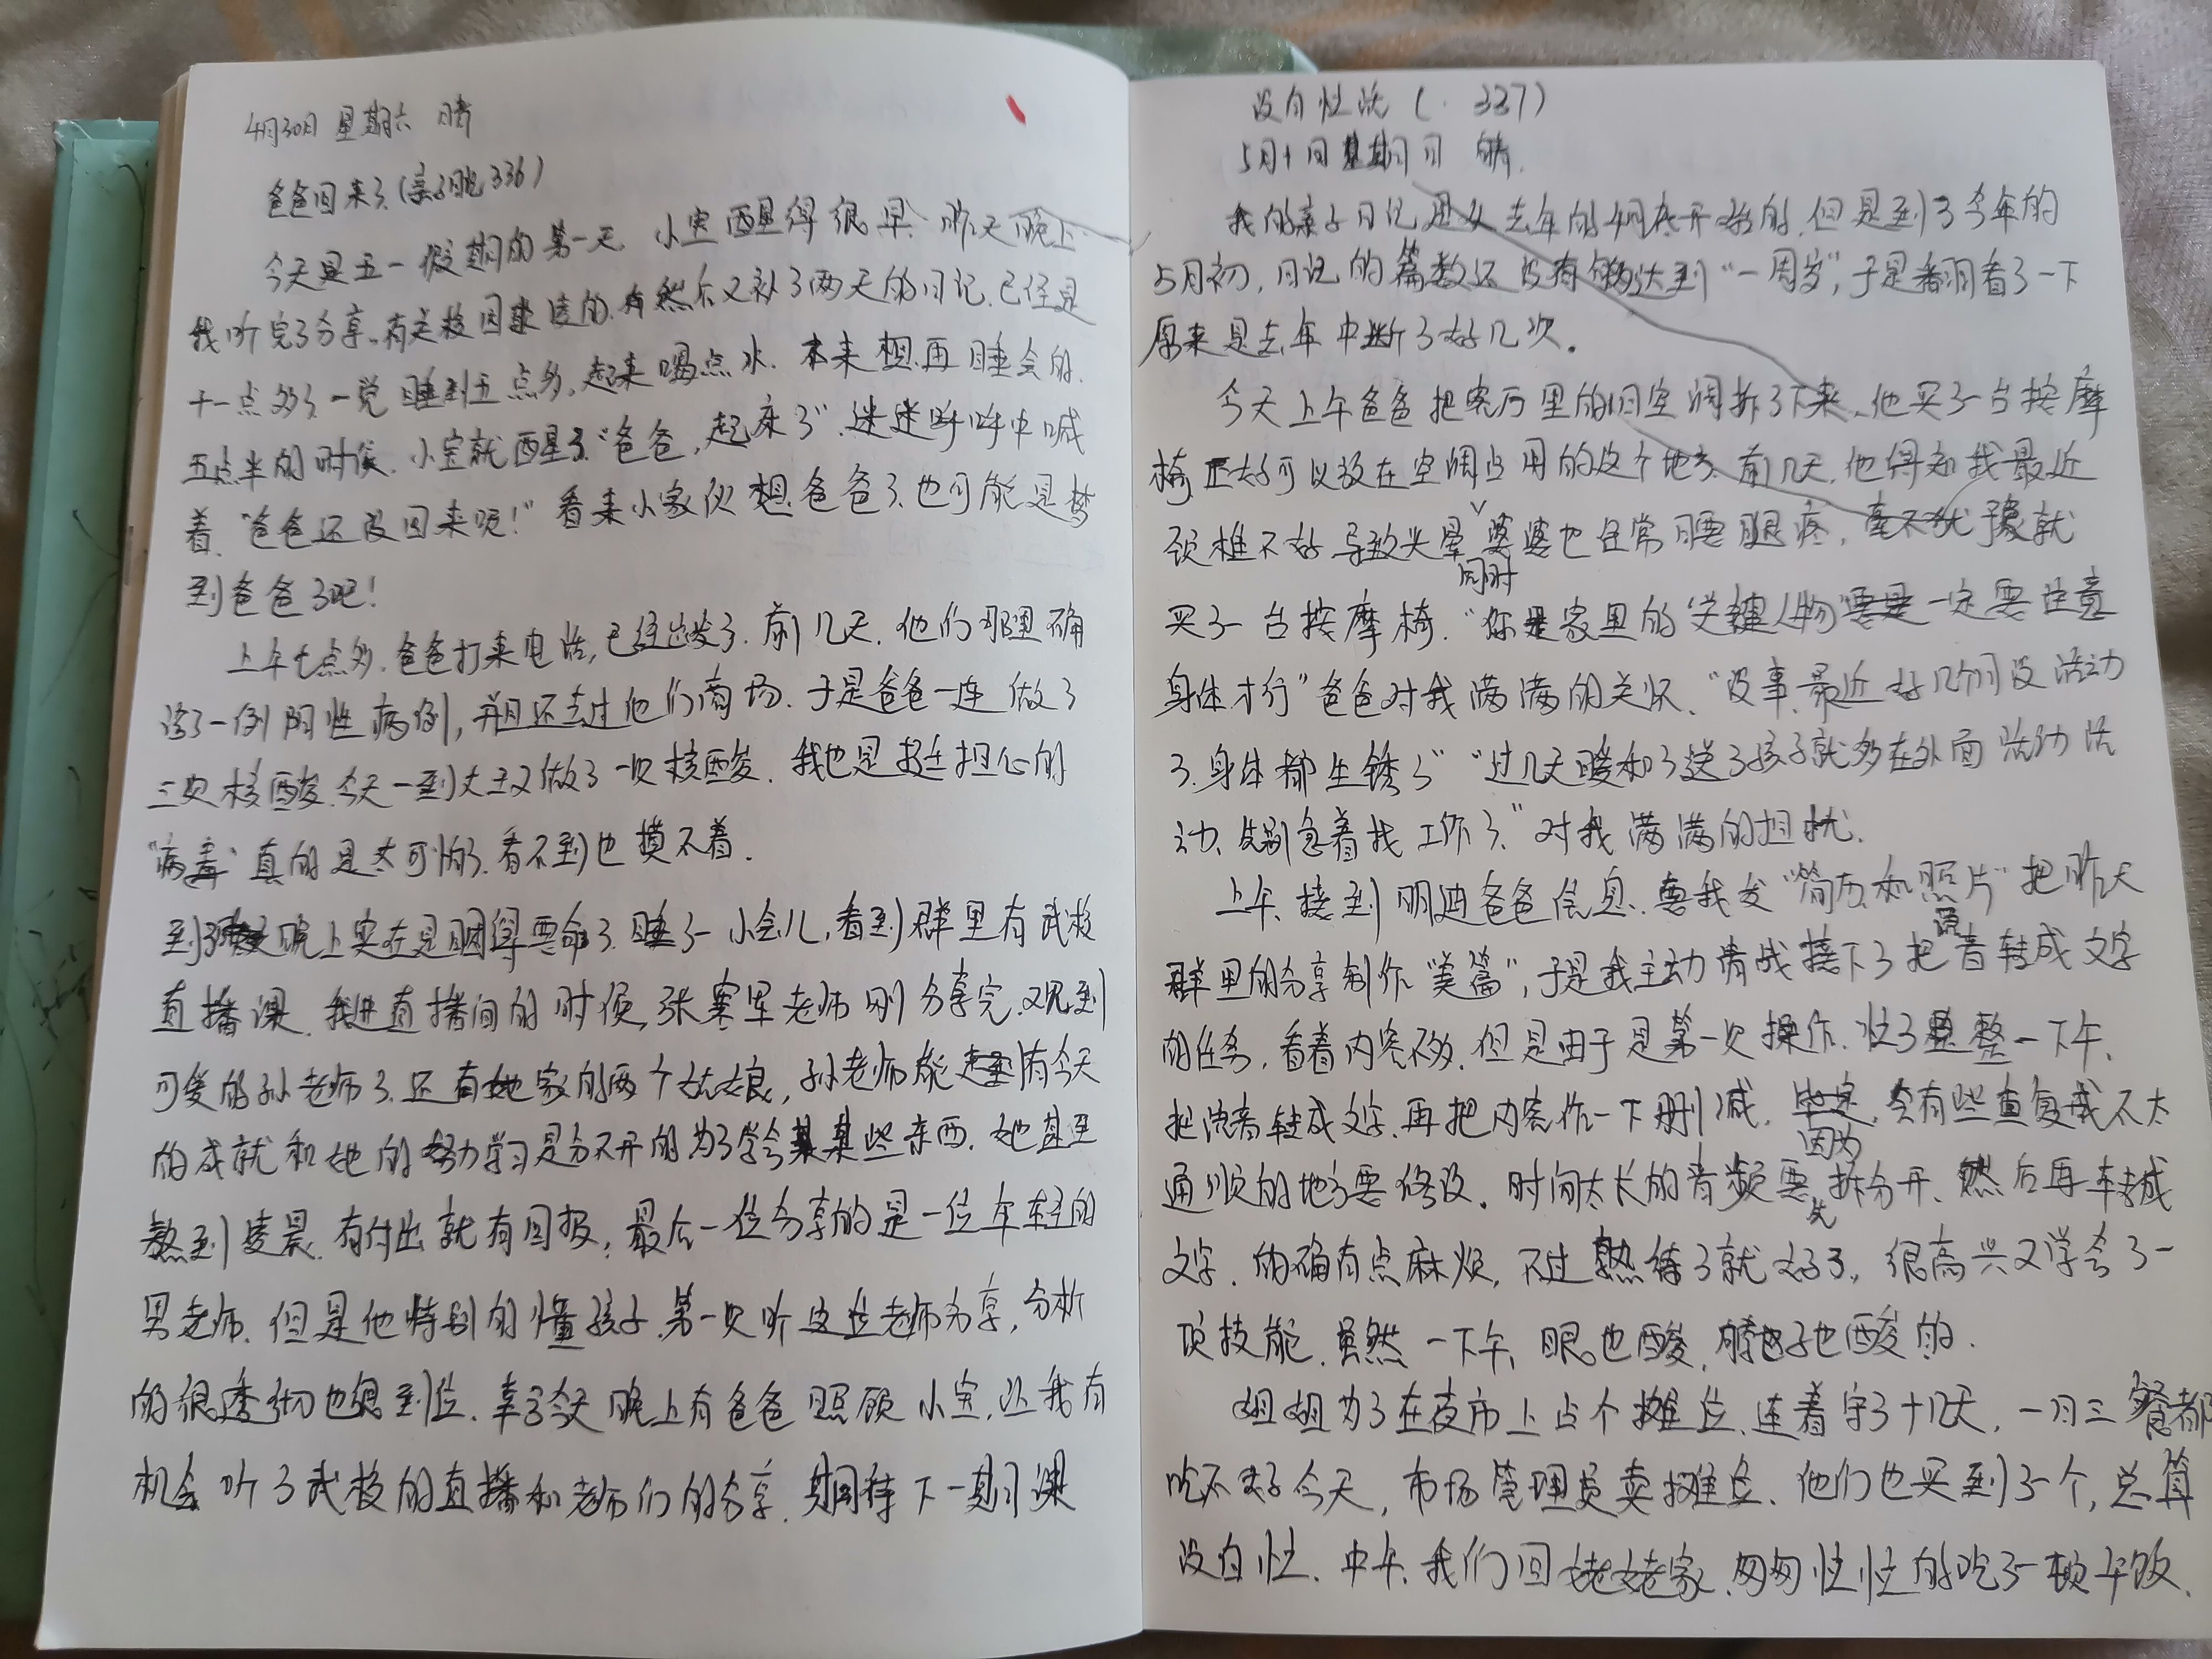 4月30日 星期六 晴
爸爸回来了(亲子日记336)
今天是五一假期的第一天 小宝醒得很早、昨天晚上
我听完了分享。有关校因素读的、然后又补了两天的日记、已经是
十一点多了、一觉睡到五点多。起来喝点水、本来想再睡会的、
五点半的时候、小宝就醒了"爸爸,起床了"、迷迷呼呼中喊
着、"爸爸还没回来呢!"看来小家伙想爸爸了、也可能是梦
到爸爸了吧!
上午七点多、爸爸打来电话,已经出发了、前几天、他们那里确
诊了一例阳性病例,并且还去过他们商场、于是爸爸一连做了
三次核酸、今天一到大王又做了一次核酸、我也是挺担心的
"病毒"真的是太可怕了、看不到也摸不着.
到了晚上实在是困得要命了、睡了一小会儿,看到群里有武校
直播课、我进直播间的时候,张寒军老师刚分享完、又见到
可爱的孙老师了、还有她家的两个姑娘,孙老师能有今天
的成就和她的努力学习是分不开的为了学会某些东西、她甚至
熬到凌晨、有付出就有回报,最后一位分享的是一位年轻的
男老师、但是他特别的懂孩子、第一次听这位老师分享,分析
的很透彻也很到位、幸亏今天晚上有爸爸照顾小宝,让我有
机会听了武校的直播和老师们的分享、期待下一期课
没白忙活(· 337)
5月1日 星期日 晴.
我的亲子日记是从去年的4月底开始的,但是到了今年的
5月初,日记的篇数还没有够达到"一周岁",于是翻看了一下
原来是去年中断了好几次。
今天上午爸爸把客厅里的旧空调拆了下来、他买了一台按摩
椅正好可以放在空调占用的这个地方、前几天,他得知我最近
颈椎不好导致头晕同时婆婆也经常腰腿疼,毫不犹豫就
买了一台按摩椅、"你是家里的'关键人物'一定要注意
身体才行"爸爸对我满满的关怀、"没事、最近好几个月没活动
了、身体都生锈了""过几天暖和了送了孩子就多在外面活动活
动、先别急着找工作了、"对我满满的担忧.
上午、接到明迪爸爸信息、要我发"简历和照片"把昨天
群里的分享制作"美篇",于是我主动请战接下了把语音转成文字
的任务,看着内容不多、但是由于是第一次操作、忙了整整一下午、
把语音转成文字、再把内容作一下删减,因为会有些重复或不太
通顺的地方要修改,时间太长的音频要先拆分开、然后再转成
文字、的确有点麻烦,不过熟练了就好了,很高兴又学会了一
项技能、虽然一下午、眼也酸,脖子也酸的.
姐姐为了在夜市上占个摊位、连着守了十几天,一日三餐都
吃不好今天,市场管理员卖摊位、他们也买到了一个,总算
没白忙、中午、我们回姥姥家、匆匆忙忙的吃了一顿午饭、